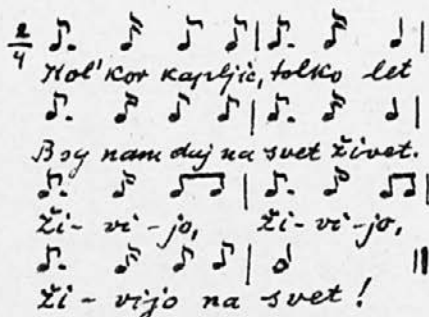 2/4
Kol'kor kapljic, tolko let
Bog nam daj na svet živet.
Ži-vi-jo, ži-vi-jo,
Ži-vijo na svet!